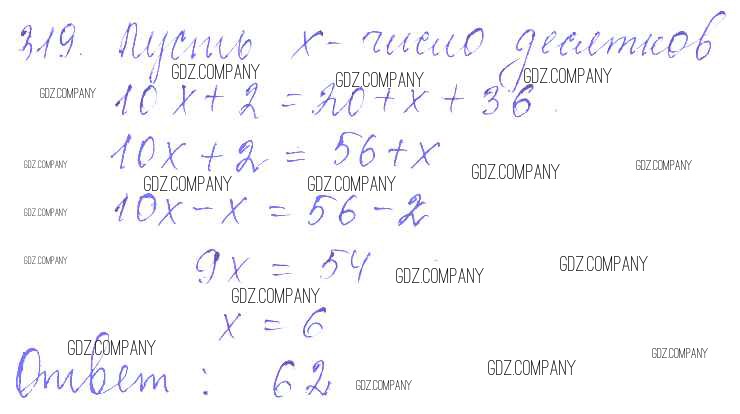 319. Пусть x - число десятков
GDZ.COMPANY GDZ.COMPANY GDZ.COMPANY
GDZ.COMPANY 10x + 2 = 20 + x + 36
10x + 2 = 56 + x
GDZ.COMPANY GDZ.COMPANY GDZ.COMPANY
GDZ.COMPANY GDZ.COMPANY
GDZ.COMPANY 10x - x = 56 - 2
GDZ.COMPANY 9x = 54 GDZ.COMPANY GDZ.COMPANY
GDZ.COMPANY
x = 6
GDZ.COMPANY GDZ.COMPANY
Ответ: 62 GDZ.COMPANY GDZ.COMPANY